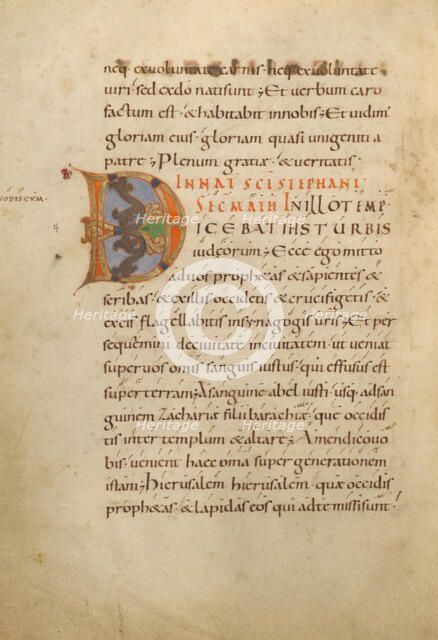 neq. exvoluntate carnis · neq. exvoluntate
viri · sed exdo natisunt ⁊ Et verbum caro
factum est · & habitabit innobis ⁊ Et vidim'
gloriam eius · gloriam quasi unigeniti a
patre ⁊ Plenum gratiae · & veritatis ·
INNAT SCI STEPHANI
SEC MATH INILLOTEMP
VOBISCVM ·
DICEBAT IHS TURBIS
iudeorum ⁊ Ecce ego mitto
aduos proph&as & sapientes &
scribas · & exillis occid&is & crucifig&is · &
exeis flagellabitis insynagogis uris ⁊ Et per
sequemini decivitate incivitatem · ut veniat
supervos omis sanguis iustus · qui effusus est
super terram ⁊ Asanguine abel iusti · usq. adsan
guinem Zachariae filii barachiae · quem occidis
tis inter templum & altare ⁊ Amen dicovo
bis · venient haec oma super generationem
istam ⁊ Hierusalem hierusalem · quae occidis
proph&as · & lapidas eos qui adte missi sunt ·
Heritage Heritage
Images Images
Heritage Heritage
Images Images
C
Heritage Heritage
Images Images
Heritage Heritage
Images Images